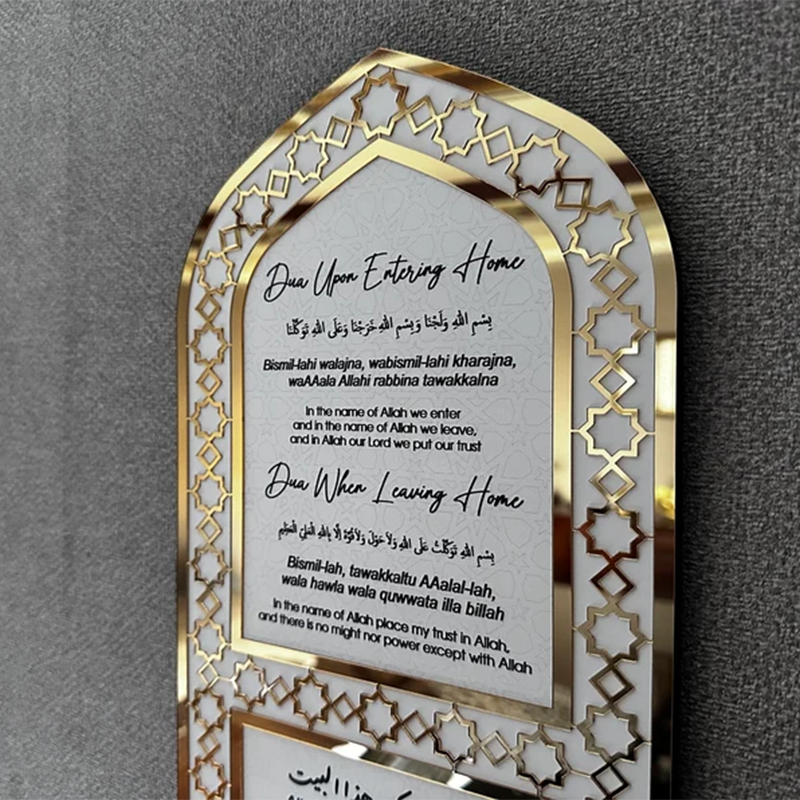 Dua Upon Entering Home
بِسْمِ اللهِ وَلَجْنَا وَبِسْمِ اللهِ خَرَجْنَا وَعَلَى اللهِ تَوَكَّلْنَا
Bismil-lahi walajna, wabismil-lahi kharajna,
waAAala Allahi rabbina tawakkalna
In the name of Allah we enter
and in the name of Allah we leave,
and in Allah our Lord we put our trust
Dua When Leaving Home
بِسْمِ اللهِ تَوَكَّلْتُ عَلَى اللهِ وَلاَ حَوْلَ وَلاَ قُوَّةَ إِلَّا بِاللهِ الْعَلِيِّ الْعَظِيْمِ
Bismil-lah, tawakkaltu AAalal-lah,
wala hawla wala quwwata illa billah
In the name of Allah place my trust in Allah,
and there is no might nor power except with Allah
هذا البيت